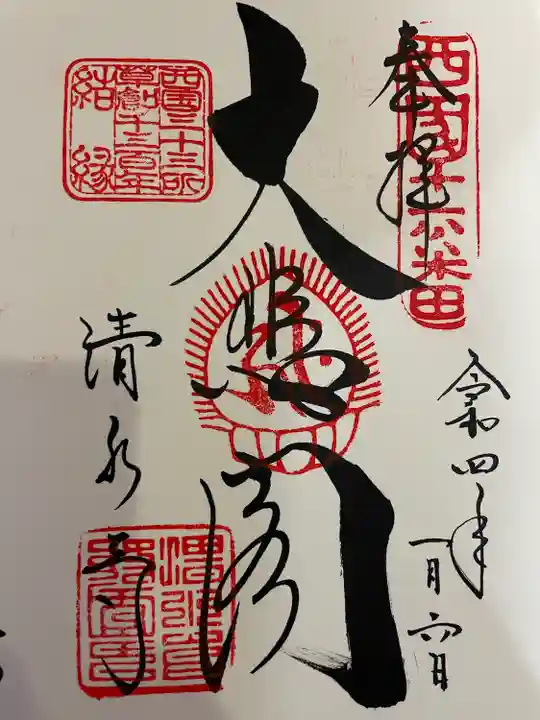 奉拝
西国十六番
令和四年
一月六日
大悲閣
西国三十三所
草創千三百年
結縁
清水寺